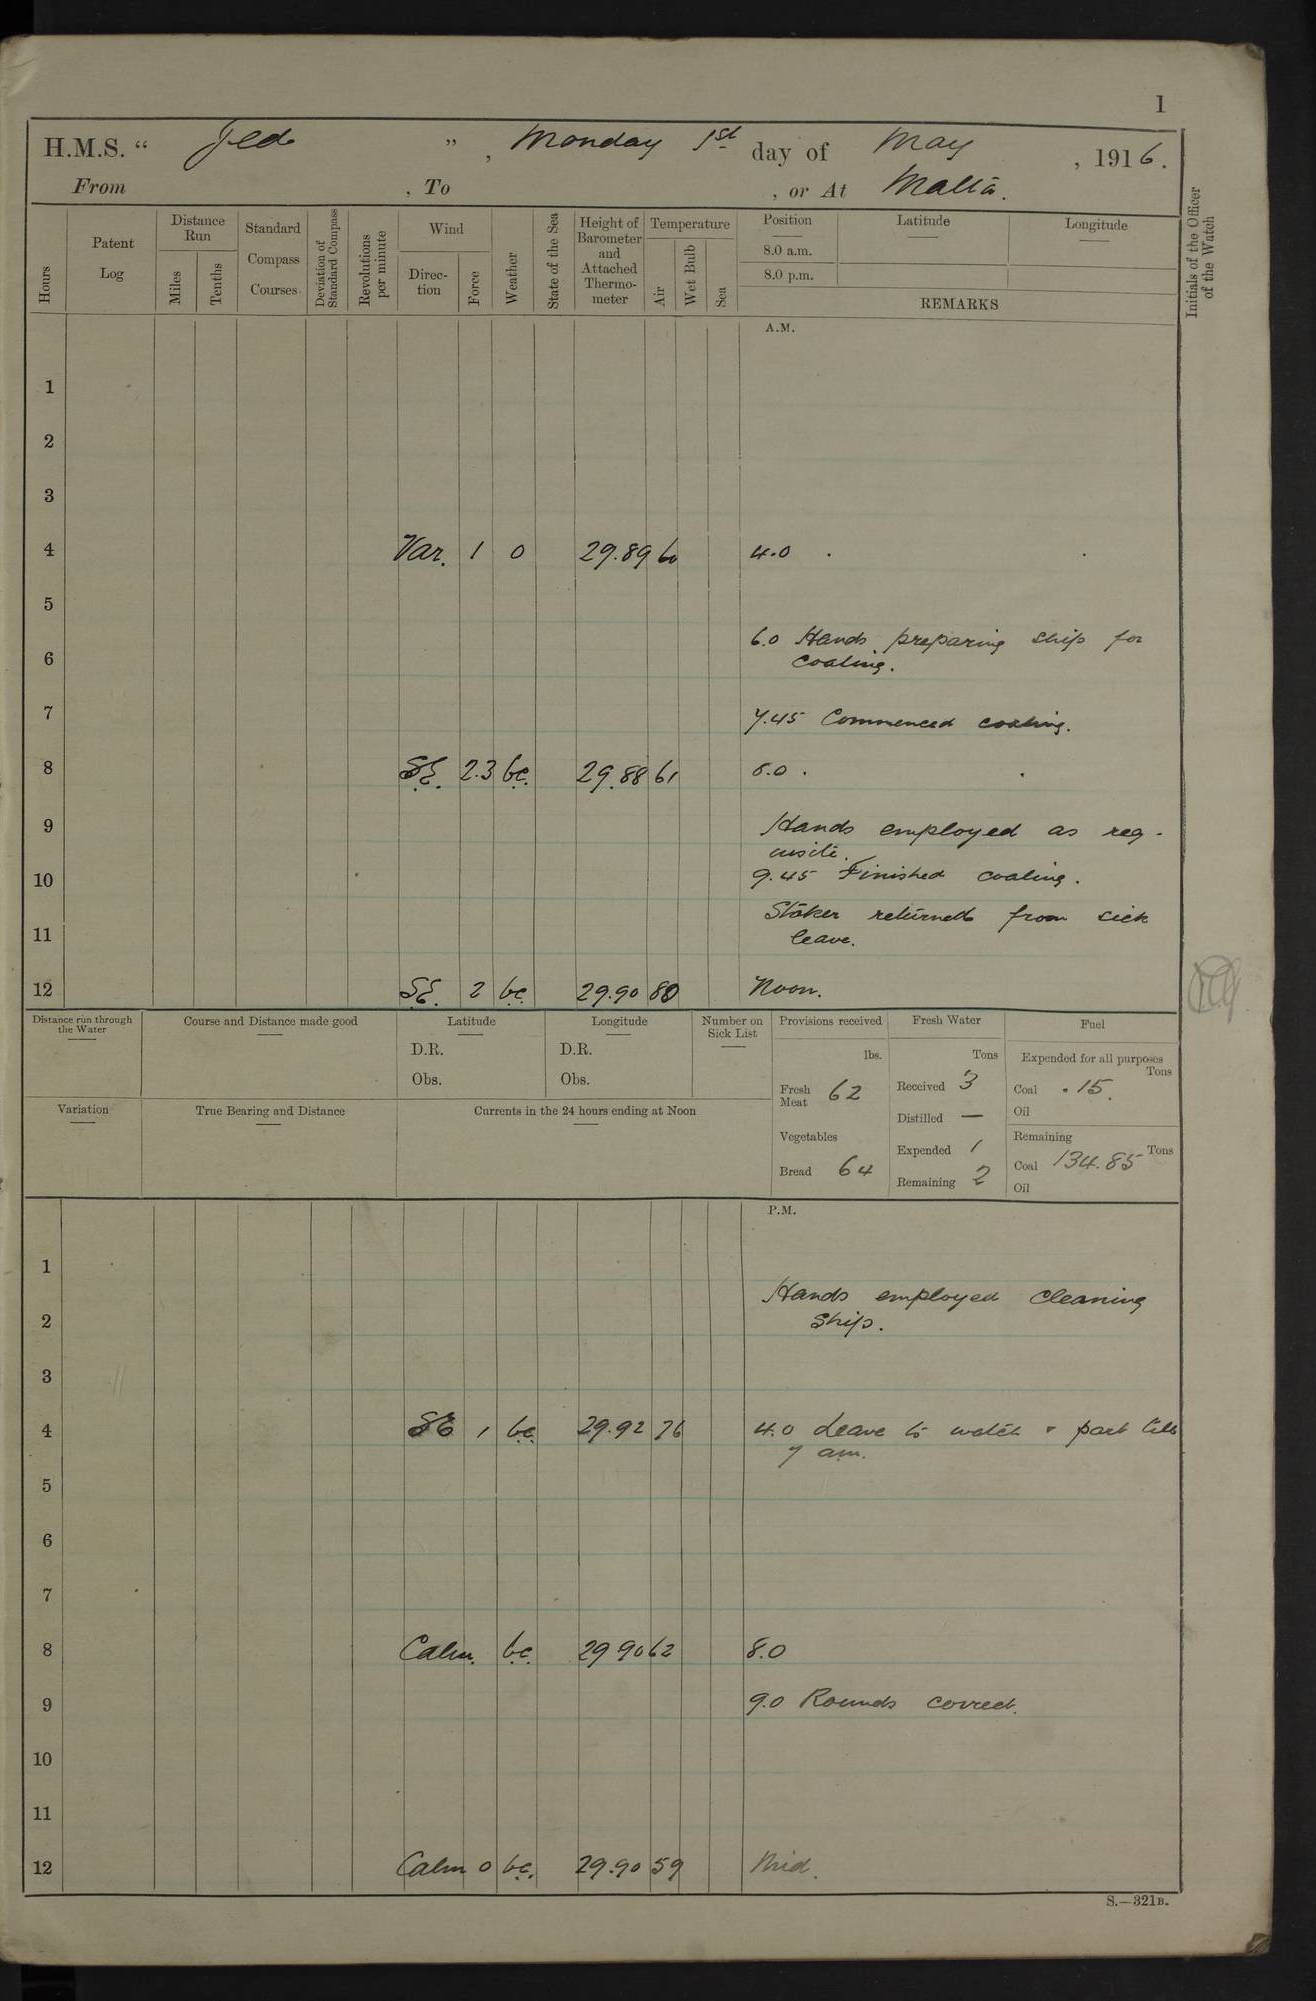 1
H.M.S. “ Jed ” , Monday 1st day of May , 1916.
From , To , or At Malta.
Hours
Patent Log
Distance Run
Miles
Tenths
Standard Compass Courses
Deviation of Standard Compass
Revolutions per minute
Wind
Direction
Force
Weather
State of the Sea
Height of Barometer and Attached Thermometer
Temperature
Air
Wet Bulb
Sea
Position
8.0 a.m.
8.0 p.m.
Latitude
Longitude
REMARKS
Initials of the Officer of the Watch
A.M.
1
2
3
4 Var. 1 0 29.89 60 4.0 .
5
6.0 Hands preparing ship for
6 coaling.
7 7.45 Commenced coaling.
8 SE. 2.3 bc. 29.88 61 8.0 .
9 Hands employed as req-
uisite.
10 9.45 Finished coaling.
Stoker returned from sick
11 leave.
12 SE. 2 bc. 29.90 80 Noon.
Distance run through the Water
Course and Distance made good
Latitude
D.R.
Obs.
Longitude
D.R.
Obs.
Number on Sick List
Provisions received
lbs.
Fresh Meat 62
Vegetables
Bread 64
Fresh Water
Tons
Received 3
Distilled —
Expended 1
Remaining 2
Fuel
Expended for all purposes
Tons
Coal .15.
Oil
Remaining
Coal 134.85 Tons
Oil
Variation
True Bearing and Distance
Currents in the 24 hours ending at Noon
P.M.
1
Hands employed cleaning
2 ship.
3
4 SE 1 bc. 29.92 76 4.0 Leave to watch & part till
7 am.
5
6
7
8 Calm. bc. 29 90 62 8.0
9 9.0 Rounds correct.
10
11
12 Calm 0 bc. 29.90 59 Mid.
S.—321B.